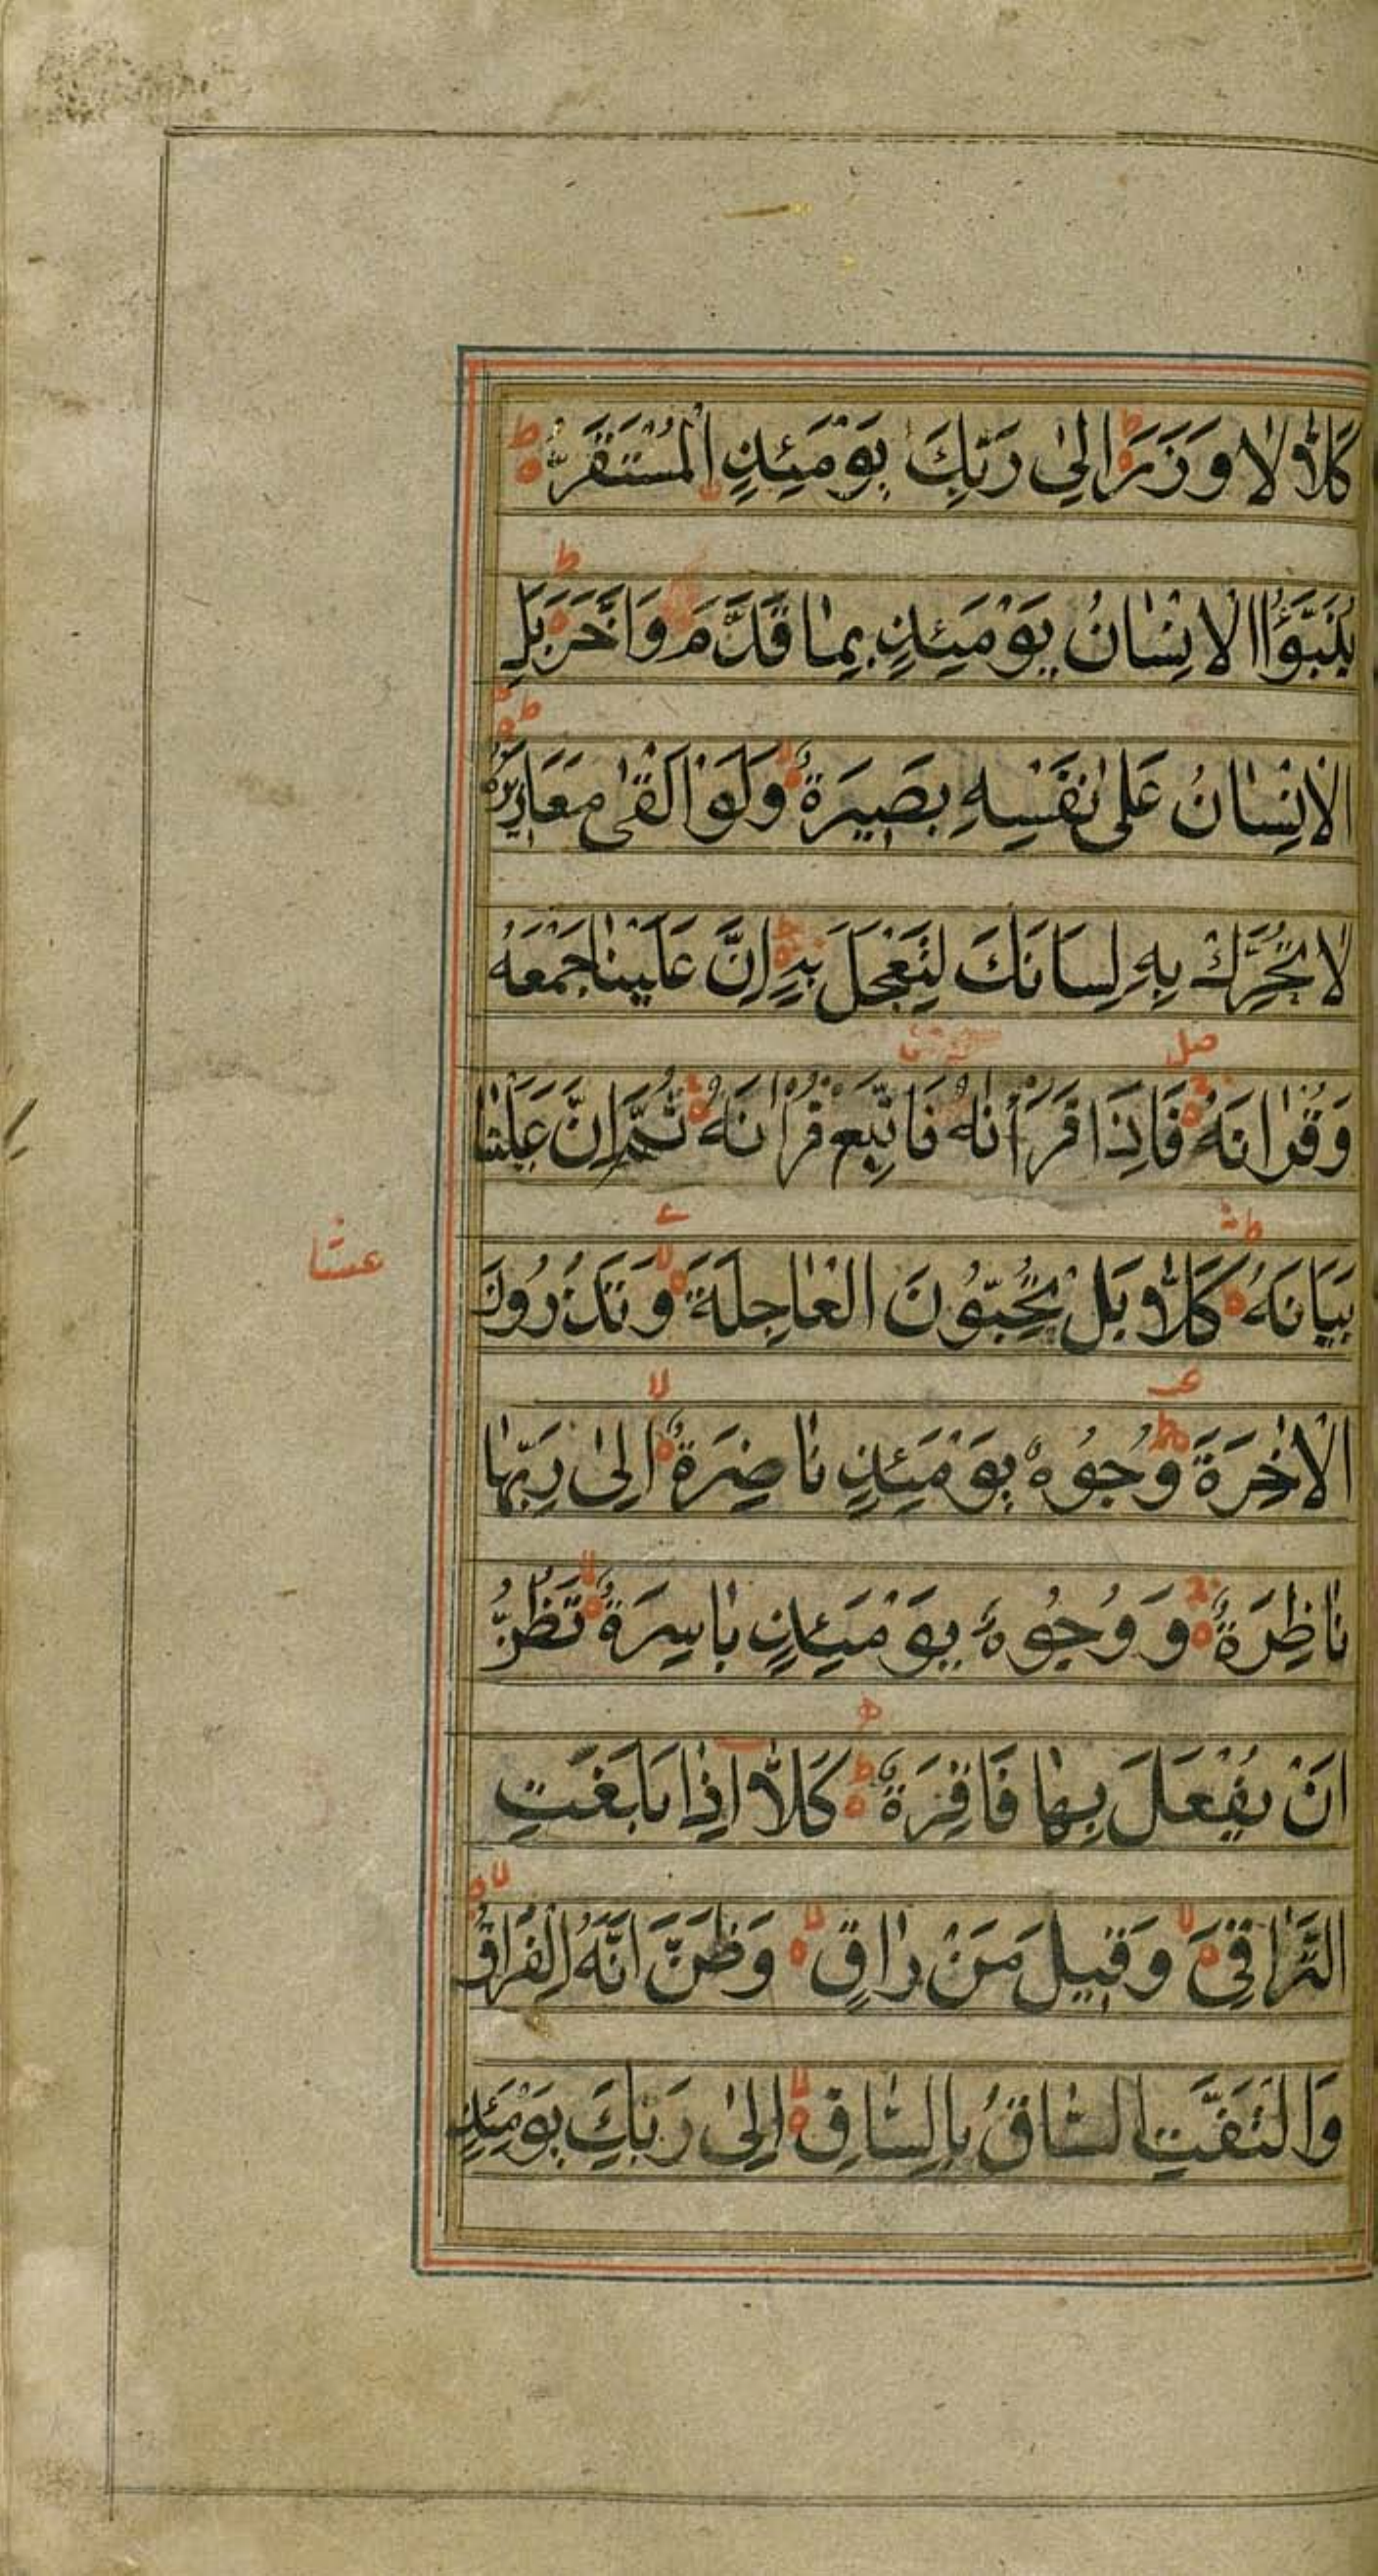 كَلَّا لَا وَزَرَ اِلىٰ رَبِّكَ يَوْمَئِذٍ الْمُسْتَقَرُّ
يُنَبَّؤُا الْاِنْسٰانُ يَوْمَئِذٍ بِمٰا قَدَّمَ وَاَخَّرَ بَلِ
الْاِنْسٰانُ عَلىٰ نَفْسِهِ بَصِيرَةٌ وَلَوْ اَلْقىٰ مَعَاذِيرَهُ
لٰا تُحَرِّكْ بِهِ لِسَانَكَ لِتَعْجَلَ بِهِ اِنَّ عَلَيْنٰا جَمْعَهُ
وَقُرْاٰنَهُ فَاِذَا قَرَأْنٰهُ فَاتَّبِعْ قُرْاٰنَهُ ثُمَّ اِنَّ عَلَيْنٰا
بَيَانَهُ كَلَّا بَلْ تُحِبُّونَ الْعٰاجِلَةَ وَتَذَرُونَ
عشا
الْاٰخِرَةَ وُجُوهٌ يَوْمَئِذٍ نٰاضِرَةٌ اِلىٰ رَبِّهٰا
نٰاظِرَةٌ وَوُجُوهٌ يَوْمَئِذٍ بٰاسِرَةٌ تَظُنُّ
اَنْ يُفْعَلَ بِهٰا فَاقِرَةٌ كَلَّا اِذٰا بَلَغَتِ
التَّرٰاقِيَ وَقِيلَ مَنْ رٰاقٍ وَظَنَّ اَنَّهُ الْفِرَاقُ
وَالْتَفَّتِ السّٰاقُ بِالسّٰاقِ اِلىٰ رَبِّكَ يَوْمَئِذٍ